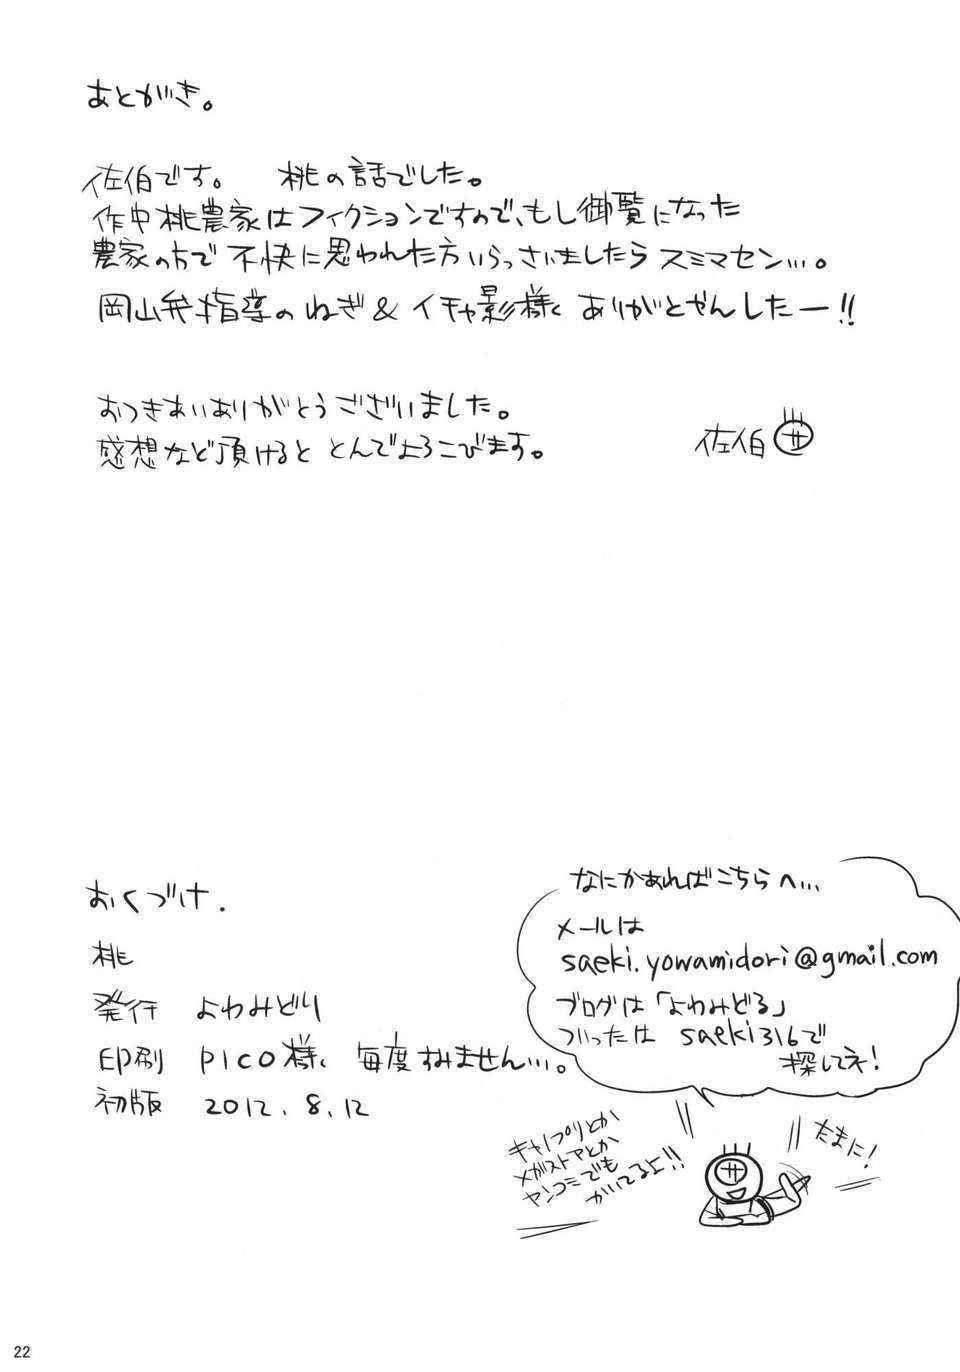 あとがき。
佐伯です。 桃の話でした。
作中桃農家はフィクションですので、もし御覧になった
農家の方で不快に思われた方いらっさいましたらスミマセン…。
岡山弁指導のねぎ&イチャ影様く ありがとやんしたー!!
おつきあいありがとうございました。
感想など頂けると とんでよろこびます。
佐伯 サ
おくづけ.
桃
発行 よわみどり
印刷 PICO様く 毎度すみません…。
初版 2012.8.12
なにかあればこちらへ…
メールは
saeki.yowamidori@gmail.com
ブログは「よわみどる」
ついったは saeki316で
探してえ!
キャノプリとか
メガストアとか
ヤンコミでも
かいてるよ!!
たまに!
サ
22